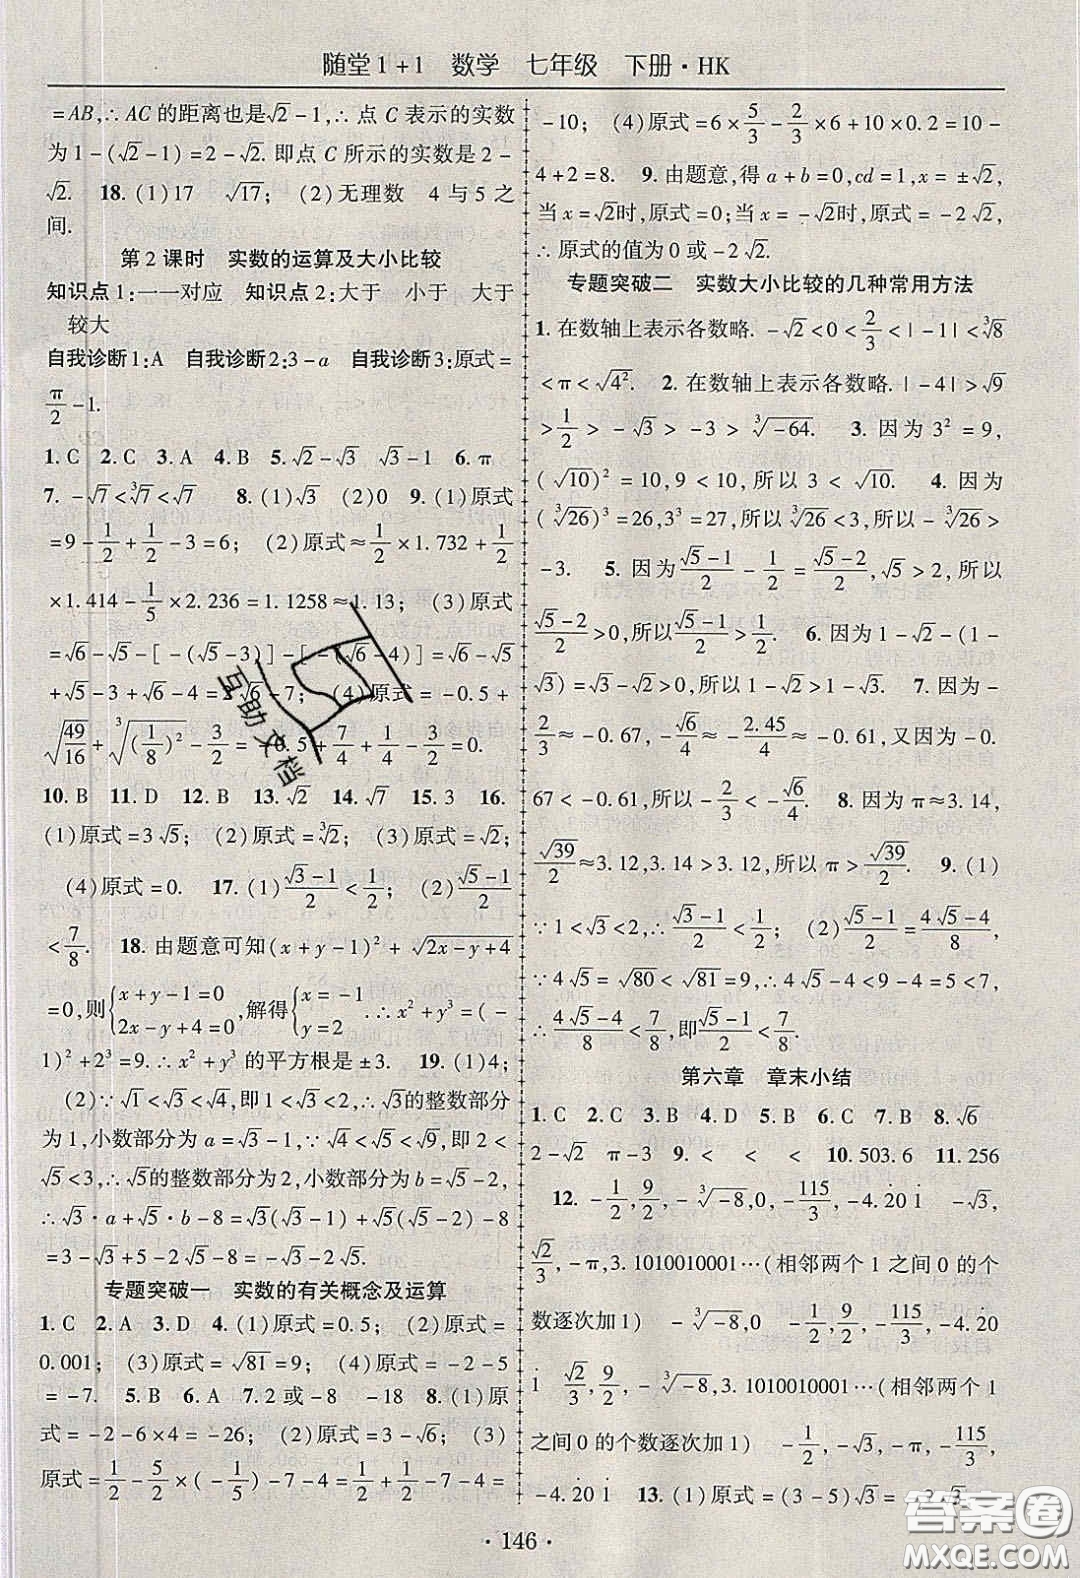 随堂1+1 数学 七年级 下册·HK
=AB,∴AC的距离也是√2-1,∴点C表示的实数
为1-(√2-1)=2-√2.即点C所示的实数是2-
√2. 18.(1)17 √17; (2)无理数 4与5之
间.
第2课时 实数的运算及大小比较
知识点1:一一对应 知识点2:大于 小于 大于
较大
自我诊断1:A 自我诊断2:3-a 自我诊断3:原式=
π/2-1.
1.C 2.C 3.A 4.B 5.√2-√3 √3-1 6.π
7.-√7<∛7<√7 8.(1)√3 (2)0 9.(1)原式
=9-1/2+1/2-3=6; (2)原式≈1/2×1.732+1/2
×1.414-1/5×2.236=1.1258≈1.13; (3)原式
=√6-√5-[-(√5-3)]-[-(√6-4)]=√6-√5
+√5-3+√6-4=2√6-7; (4)原式=-0.5+
√(49/16)+∛((1/8)²)-3/2=-0.5+7/4+1/4-3/2=0.
10.B 11.D 12.B 13.√2 14.√7 15.3 16.
(1)原式=3√5; (2)原式=∛2; (3)原式=√2;
(4)原式=0. 17.(1)(√3-1)/2<1/2; (2)(√5-1)/2
<7/8. 18.由题意可知(x+y-1)²+√(2x-y+4)
=0,则{x+y-1=0 2x-y+4=0,解得{x=-1 y=2.∴x²+y³=(-
1)²+2³=9.∴x²+y³的平方根是±3. 19.(1)4;
(2)∵√1<√3<√4,即1<√3<2,∴√3的整数部分
为1,小数部分为a=√3-1,∵√4<√5<√9,即2<
√5<3,∴√5的整数部分为2,小数部分为b=√5-2,
∴√3·a+√5·b-8=√3(√3-1)+√5(√5-2)-8
=3-√3+5-2√5-8=-√3-2√5.
专题突破一 实数的有关概念及运算
1.C 2.A 3.D 4.(1)原式=0.5; (2)原式=
0.001; (3)原式=√81=9; (4)原式=-2-5
=-7. 5.B 6.A 7.2或-8 -18 8.(1)原
式=-2-6×4=-26; (2)原式=-3; (3)
原式=1/2-5/2×(-1/5)-7=1/2+1/2-7-4=
-10; (4)原式=6×5/3-2/3×6+10×0.2=10-
4+2=8. 9.由题意,得a+b=0,cd=1,x=±√2,
当x=√2时,原式=0;当x=-√2时,原式=-2√2,
∴原式的值为0或-2√2.
专题突破二 实数大小比较的几种常用方法
1.在数轴上表示各数略.-√2<0<2/3<|-1|<∛8
<π<√4². 2.在数轴上表示各数略.|-4|>√9
>1/2>-√3>-3>∛-64. 3.因为3²=9,
(√10)²=10,9<10,所以3<√10. 4.因为
(∛26)³=26,3³=27,所以∛26<3,所以-∛26>
-3. 5.因为(√5-1)/2-1/2=(√5-2)/2,√5>2,所以
(√5-2)/2>0,所以(√5-1)/2>1/2. 6.因为1-√2-(1-
√3)=√3-√2>0,所以1-√2>1-√3. 7.因为-
2/3≈-0.67,-√6/4≈-2.45/4≈-0.61,又因为-0.
67<-0.61,所以-2/3<-√6/4. 8.因为π≈3.14,
√39/2≈3.12,3.14>3.12,所以π>√39/2. 9.(1)
∵1<√3<2,∴(√3-1)/2<1/2; (2)(√5-1)/2=(4√5-4)/8,
∵4√5=√80<√81=9,∴4√5-4<9-4=5<7,
∴(4√5-4)/8<7/8,即(√5-1)/2<7/8.
第六章 章末小结
1.C 2.C 3.B 4.D 5.B 6.C 7.B 8.√6
2-√2 π-3 9.< < < 10.503.6 11.256
12.-1/2,9/2,-∛-8,0,-115/3,-4.2̇01̇ -√3,
√2/3,-π,3.1010010001…(相邻两个1之间0的个
数逐次加1) -∛-8,0 -1/2,9/2,-115/3,-4.2̇0
1̇ √2/3,9/2,-∛-8,3.1010010001…(相邻两个1
之间0的个数逐次加1) -1/2,-√3,-π,-115/3,
-4.2̇01̇ 13.(1)原式=(3-5)√3=-2√3.
·146·
互助文档
答案圈
MXQE.COM